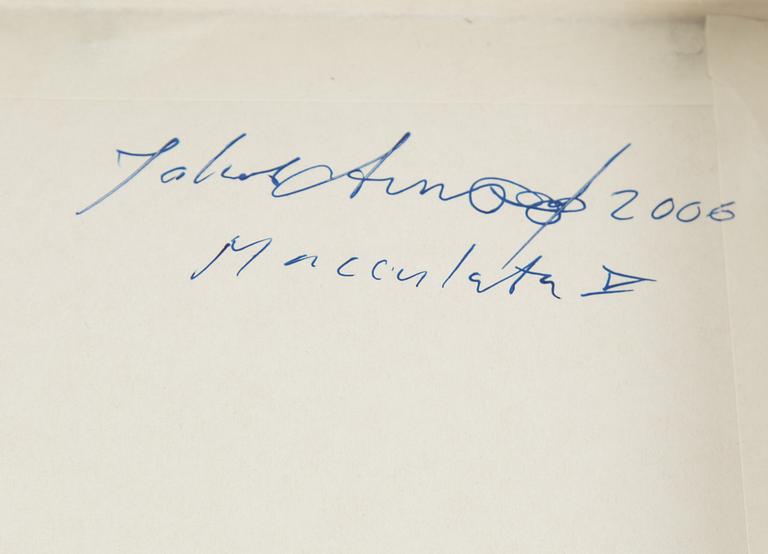 Jakob Arnoldi 2006
Macculata V